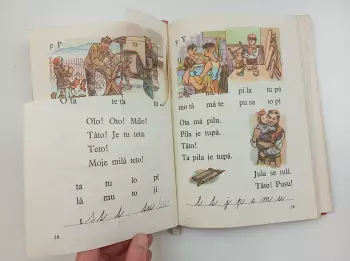 p P
O ta te ta ta
Olo! Oto! Milo!
Táto! Je tu teta.
Teto!
Moje milá teto!
ta tu lo pi
lá mu to ji
p P
pi la tu pá
mo tá má te pu sa to pí
Ota má pilu.
Pila je tupá.
Táto!
Ta pila je tupá.
Jula se tulí.
Táto! Pusu!
t s j p o m u